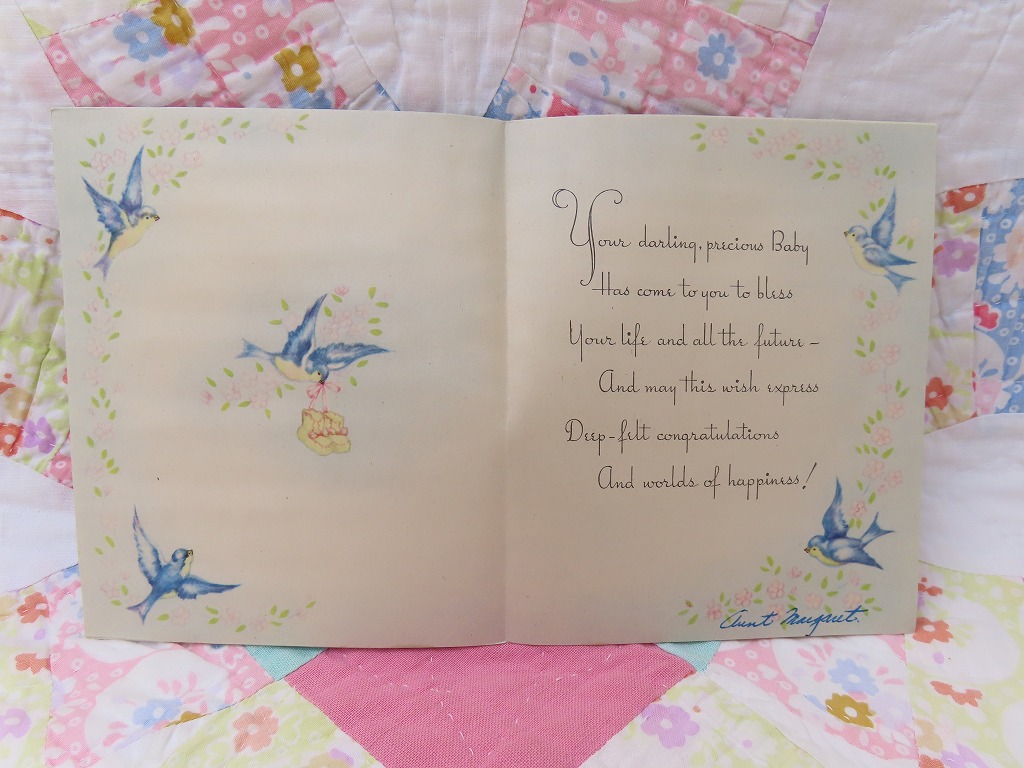 Your darling, precious Baby
Has come to you to bless
Your life and all the future –
And may this wish express
Deep-felt congratulations
And worlds of happiness!
Aunt Margaret.